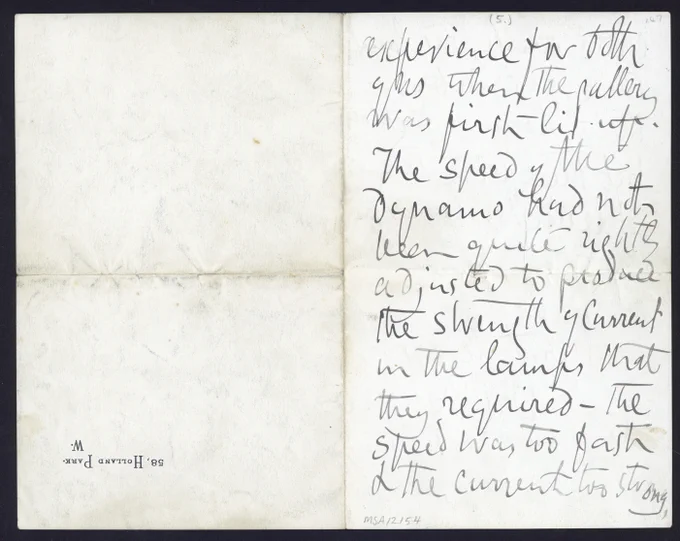 58, HOLLAND PARK.
W.
(5.)
167
experience for both
of us when the gallery
was first lit up.
The speed of the
Dynamo had not
been quite rightly
adjusted to produce
the strength of Current
in the lamps that
they required – The
speed was too fast
& the current too strong,
MSA12154